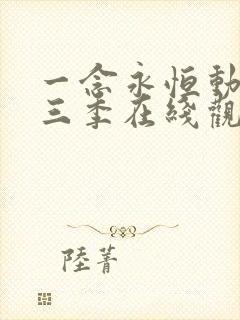 一念永恒動
三季在綫觀
陸菁